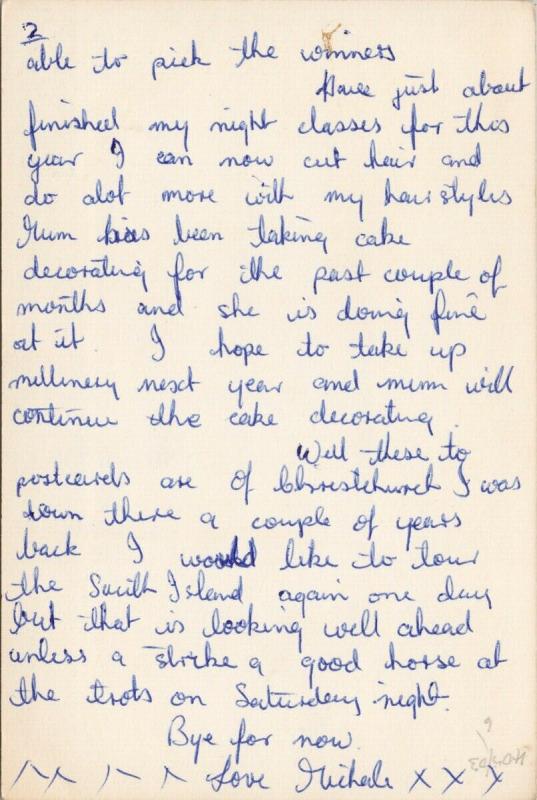 2
able to pick the winners
Have just about
finished my night classes for this
year I can now cut hair and
do alot more with my hairstyles
Mum has been taking cake
decorating for the past couple of
months and she is doing fine
at it I hope to take up
millinery next year and mum will
continue the cake decorating.
Well these to
postcards are of Christchurch I was
down there a couple of years
back I would like to tour
the South Island again one day
but that is looking well ahead
unless a strike a good horse at
the trots on Saturday night.
Bye for now.
Love Michele x x x